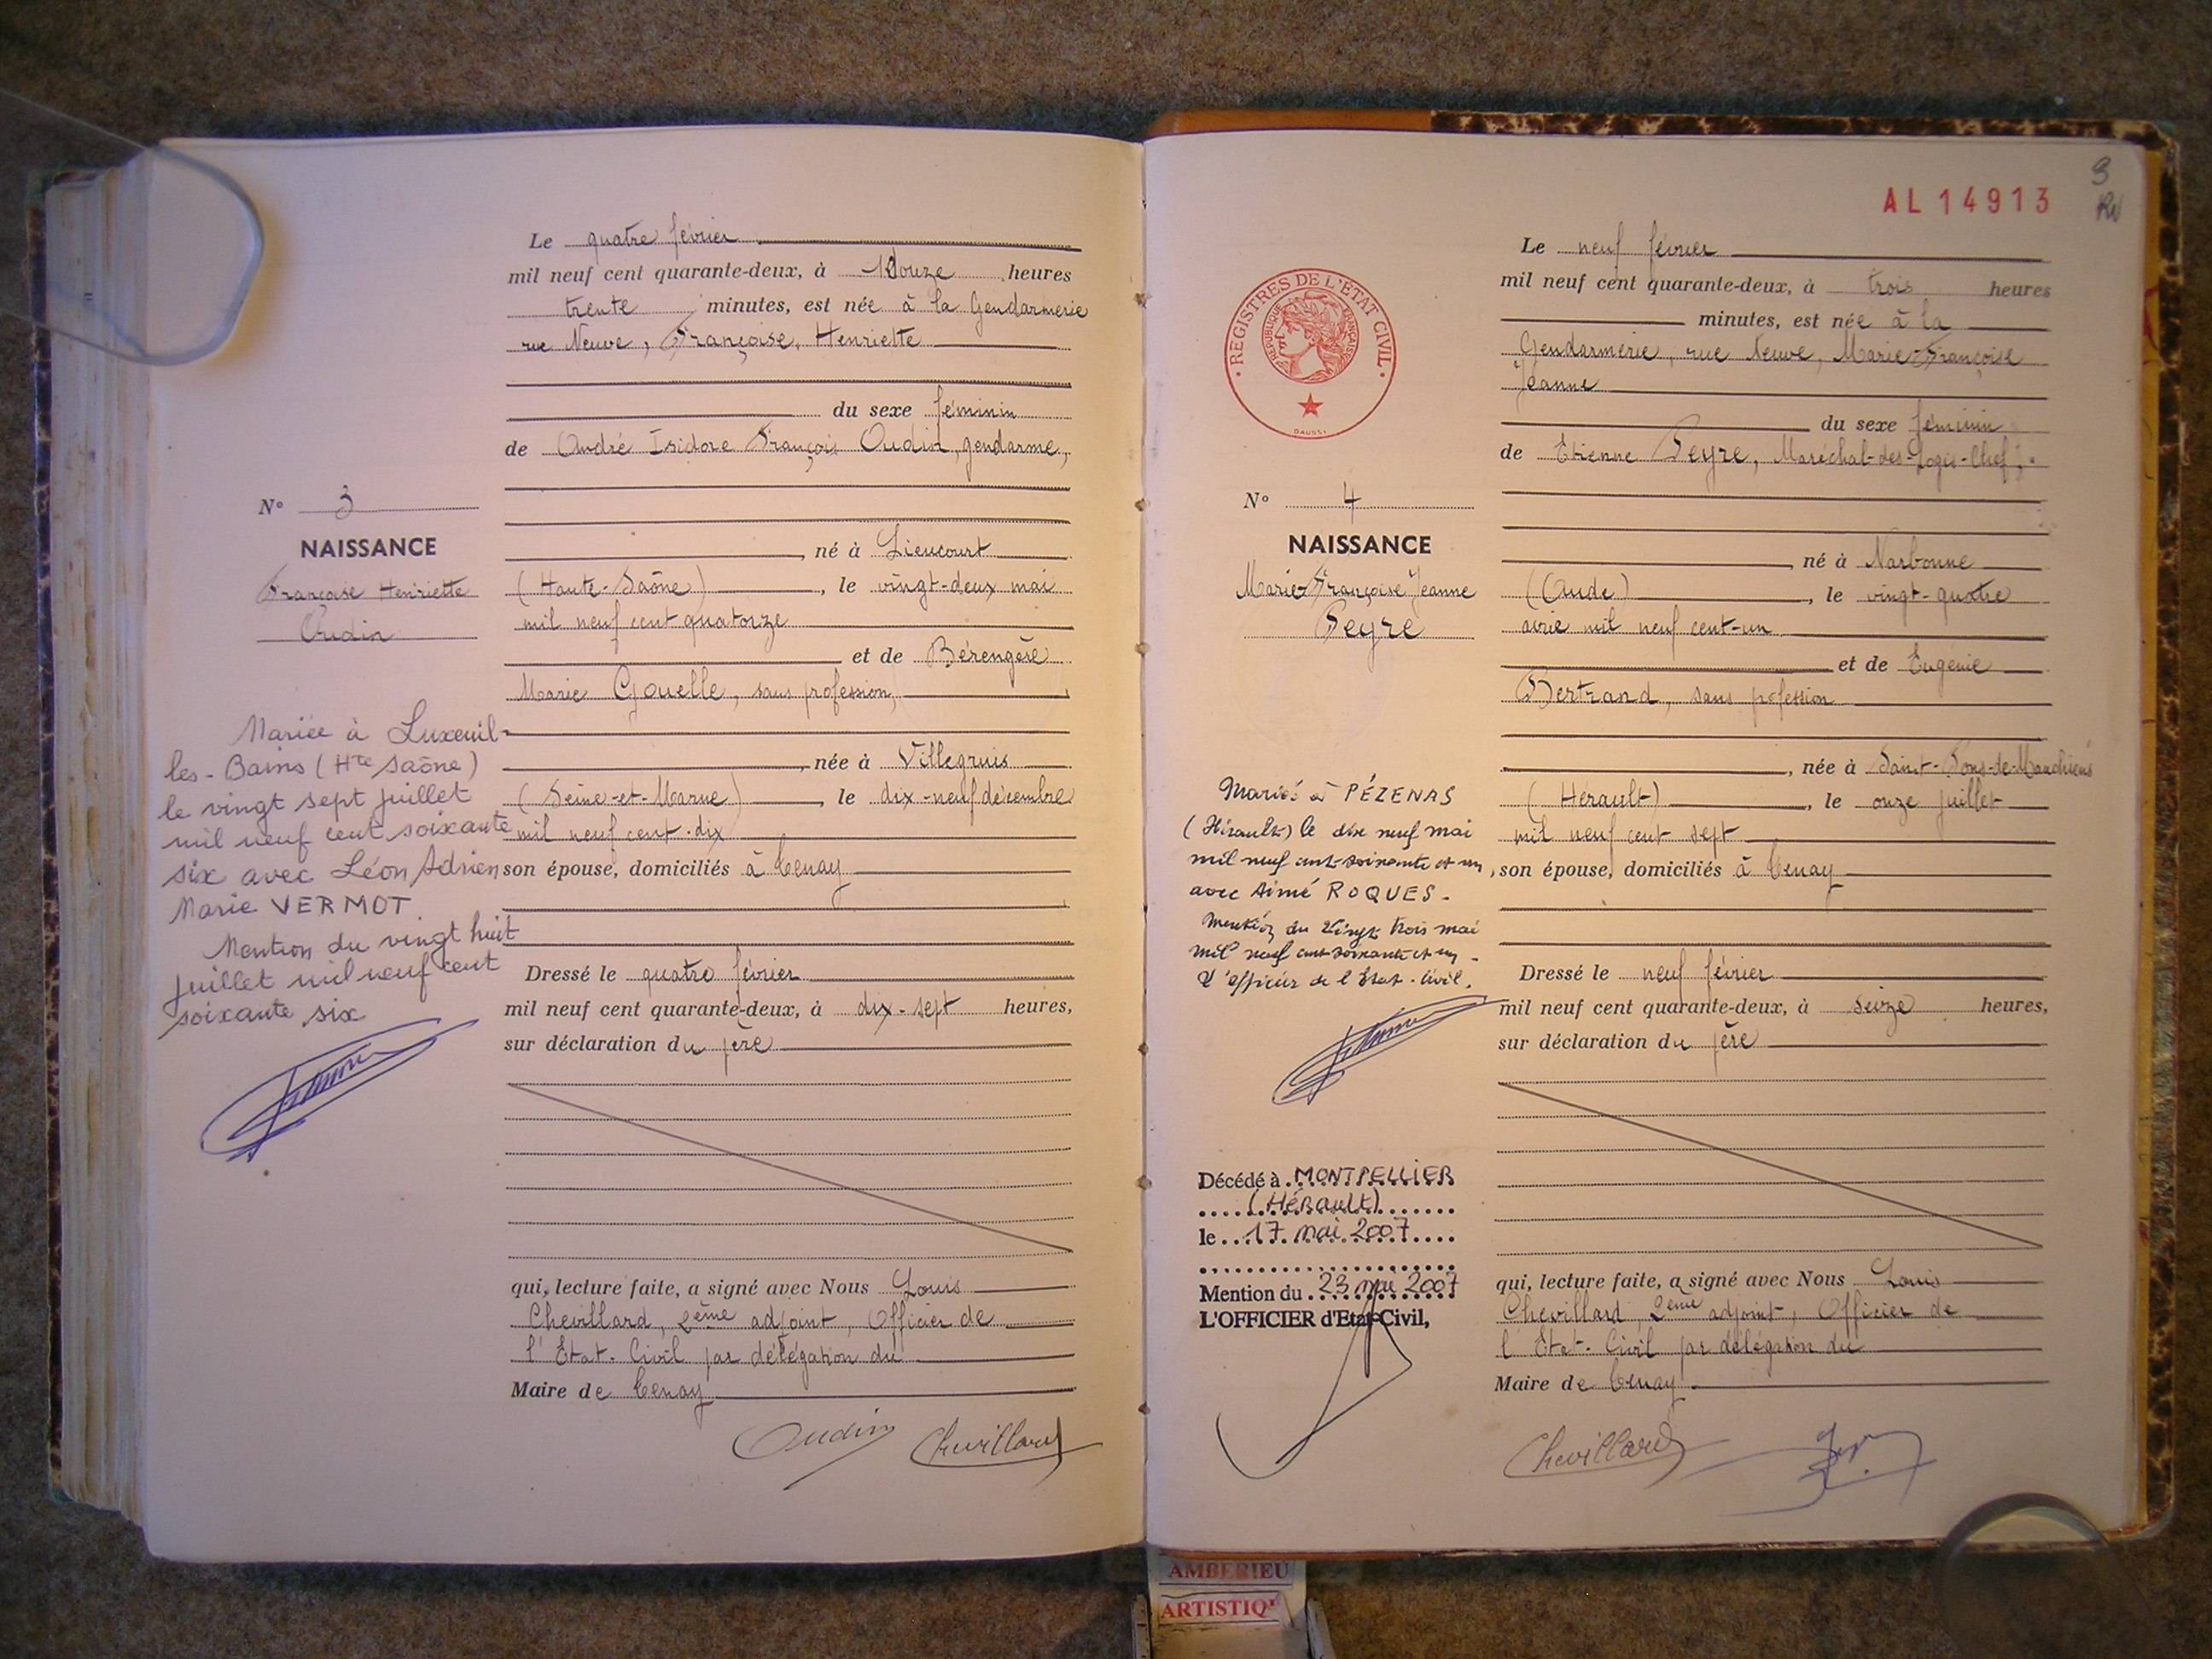 Le quatre février
mil neuf cent quarante-deux, à douze heures
trente minutes, est née à la Gendarmerie
rue Neuve, Françoise, Henriette
du sexe féminin
de André Isidore François Oudin, gendarme,
N° 3
NAISSANCE
Françoise Henriette
Oudin
né à Lieucourt
(Haute-Saône), le vingt-deux mai
mil neuf cent quatorze
et de Bérengère
Marie Gouelle, sans profession,
née à Villegruis
(Seine-et-Marne), le dix-neuf décembre
mil neuf cent dix
son épouse, domiciliés à Tenay
Mariée à Luxeuil-
les-Bains (Hte Saône)
le vingt sept juillet
mil neuf cent soixante
six avec Léon Adrien
Marie VERMOT
Mention du vingt huit
juillet mil neuf cent
soixante six
Dressé le quatre février
mil neuf cent quarante-deux, à dix-sept heures,
sur déclaration du père
qui, lecture faite, a signé avec Nous Louis
Chevillard, 2ème adjoint, Officier de
l'Etat-Civil par délégation du
Maire de Tenay
Oudin Chevillard
AL 14913
3
REGISTRES DE L'ÉTAT CIVIL
RÉPUBLIQUE FRANÇAISE
DAUSSY
Le neuf février
mil neuf cent quarante-deux, à trois heures
minutes, est née à la
Gendarmerie, rue Neuve, Marie-Françoise
Jeanne
du sexe féminin
de Etienne Peyre, Maréchal-des-Logis-Chef,
N° 4
NAISSANCE
Marie-Françoise Jeanne
Peyre
né à Narbonne
(Aude), le vingt-quatre
avril mil neuf cent-un
et de Eugénie
Bertrand, sans profession
née à Saint-Pons-de-Mauchiens
(Hérault), le onze juillet
mil neuf cent sept
son épouse, domiciliés à Tenay
Mariée à PÉZENAS
(Hérault) le dix neuf mai
mil neuf cent-soixante et un,
avec Aimé ROQUES-
Mention du Vingt trois mai
mil neuf cent soixante et un-
L'officier de l'État-Civil.
Dressé le neuf février
mil neuf cent quarante-deux, à seize heures,
sur déclaration du père
Décédé à MONTPELLIER
(Hérault)
le 17 mai 2007
Mention du 23 mai 2007
L'OFFICIER d'Etat-Civil,
qui, lecture faite, a signé avec Nous Louis
Chevillard, 2ème adjoint, Officier de
l'Etat-Civil par délégation du
Maire de Tenay
Chevillard
AMBERIEU
ARTISTIQ